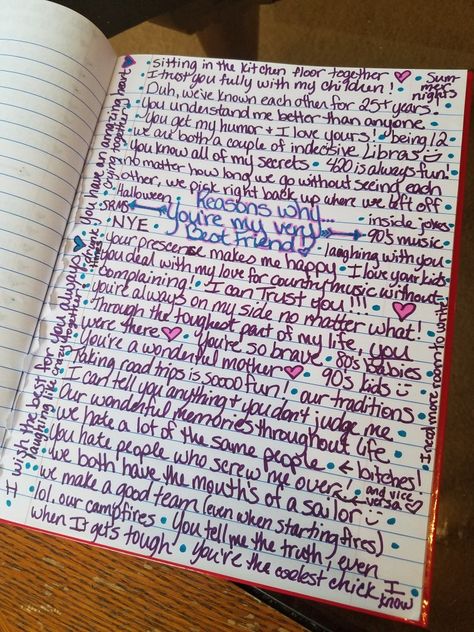 sitting in the kitchen floor together
Summer nights
I trust you fully with my children!
Duh, we've known each other for 25+ years!
You understand me better than anyone
You get my humor + I love yours! being 12
we are both a couple of indecisive Libras
You know all of my secrets 420 is always fun!
no matter how long we go without seeing each
other, we pick right back up where we left off
Halloween
SRMS
NYE
Reasons why...
You're my very
Best friend
inside jokes
90's music
laughing with you
your prescense makes me happy I love your kids
You deal with my love for country music without
complaining! I can Trust you!!!
you're always on my side no matter what!
Through the toughest part of my life, you
were there You're so brave 80's Babies
You're a wonderful mother 90's kids
Taking road trips is soooo fun! our traditions
I can tell you anything + you don't judge me
Our wonderful memories throughout life
we hate a lot of the same people ← bitches!
You hate people who screw me over! and vice versa
we both have the mouth's of a sailor
we make a good team (even when starting fires)
lol. our campfires You tell me the truth, even
when It gets tough You're the coolest chick I
know
You have an amazing heart
crying together
Drunk times
I wish the best for you always
laughing like crazy together
I need more room to write!